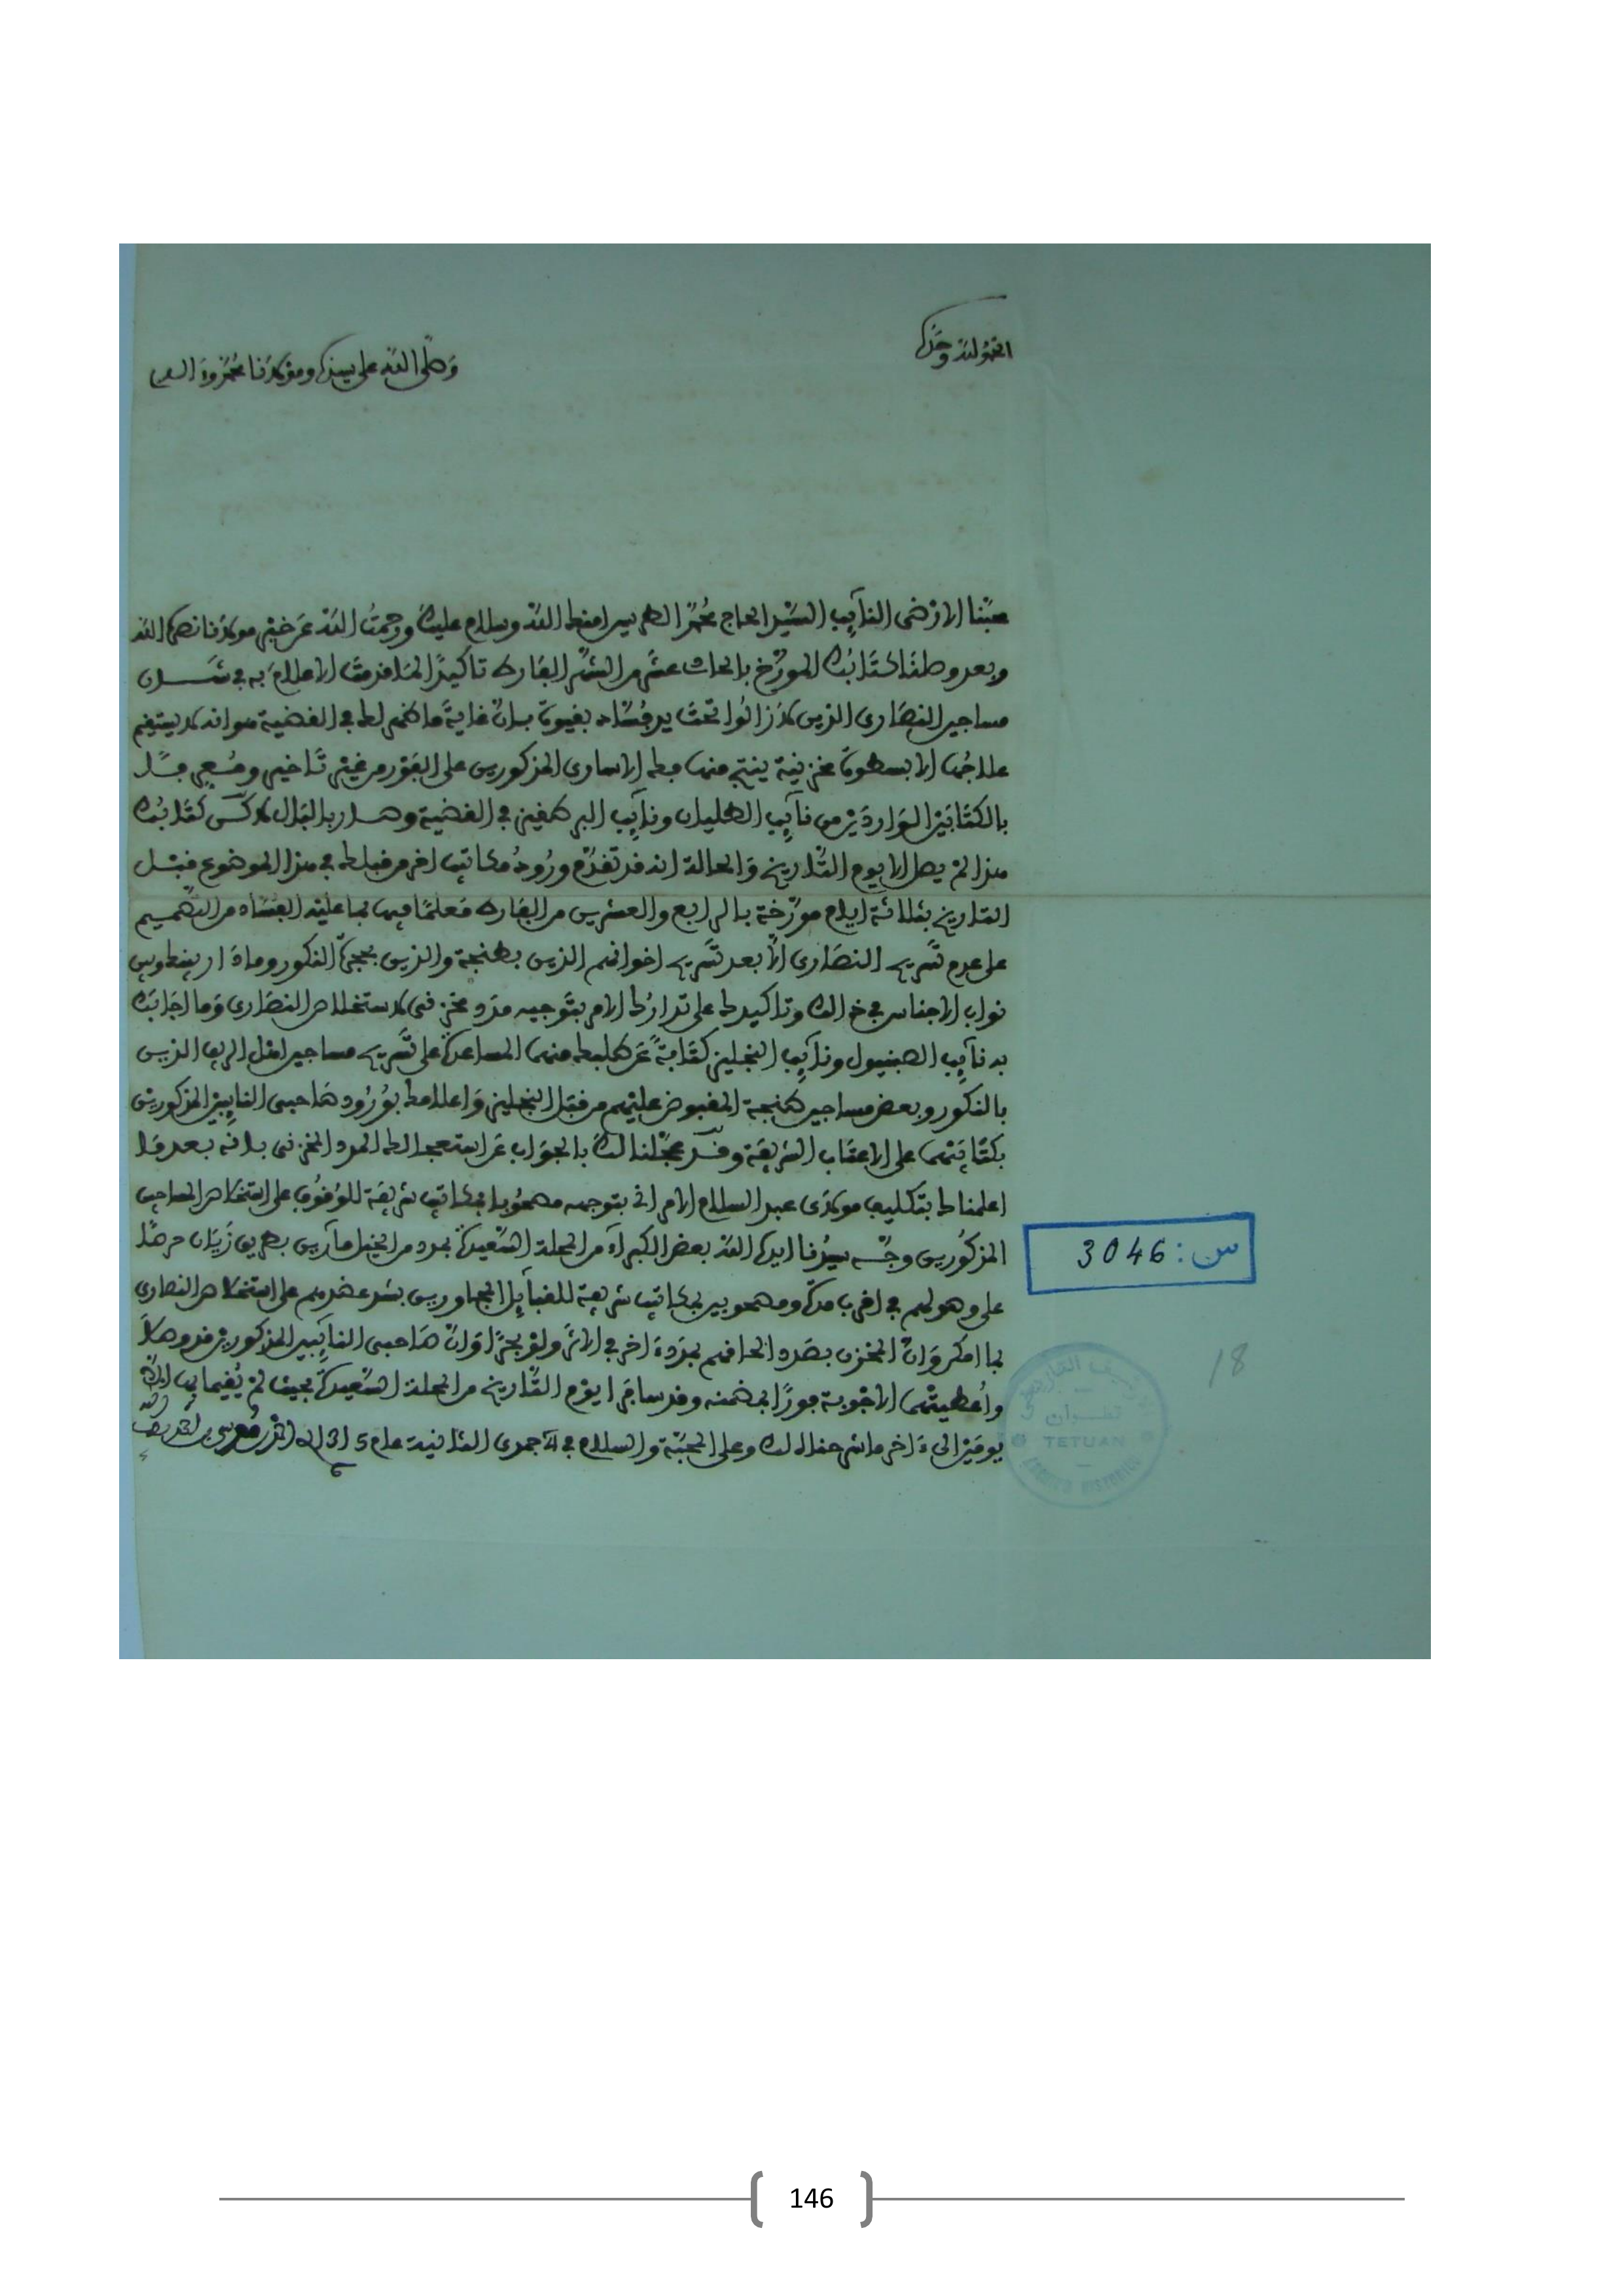 الحمد لله وحده
وصلى الله على سيدنا ومولانا محمد وآله
محبنا الارضى النايب السيد الحاج محمد الطريس امنك الله وسلام عليك ورحمت الله عن خير مولانا نصره الله
وبعد وصلنا كتابك المورخ بالحادي عشر من الشهر الفارط تاكيدا لما قدمت الاعلام به في شان
مساجين النصارى الذين لا زالوا تحت يد فساد بقيوة بان غاية ما ظهر لك في القضية هو انه لا يستقيم
علاجها الا بسطوة مخزنية ينتج منها فك الاسارى المذكورين على الفور من غير تاخير
بالكتابين الواردين من نايب الطليان ونايب البرطقيز في القضية وصار بالبال لاكن كتابك
هذا لم يصل الا يوم التاريخ والحالة انه قد تقدم ورود مكاتيب اخر من قبلك في هذا الموضوع قبل
التاريخ بثلاثة ايام مورخة بالرابع والعشرين من الفارط معلما فيها بما عليه الفساد من التصميم
على عدم تسريح النصارى الا بعد تسريح اخوانهم الذين بطنجة والذين بحجرة النكور وما دار بينك وبين
نواب الاجناس في ذالك وتاكيدك على تدارك الامر بتوجيه مدد مخزني لاستخلاص النصارى وما اجابك
به نايب الصبنيول ونايب النجليز كتابة عن طلبك منهما المساعدة على تسريح مساجين اهل الريف الذين
بالنكور وبعض مساجين طنجة المقبوض عليهم من قبل النجليز واعلامك بورود صاحبي النايبين المذكورين
بكتابيهما على الاعتاب الشريفة وقد عجلنا لك بالجواب عن استعجالك المدد المخزني بانه بعد ما
اعلمناك بتكليف مولاي عبد السلام الامراني بتوجهه مصحوبا بمكاتيب شريفة للوقوف على استخلاص المساجين
المذكورين وجه سيدنا ايده الله بعض الكبراء من المحلة السعيدة بمدد من الخيل مارين بطريق زيان حرصا
على وصولهم في اقرب مدة ومصحوبين بمكاتيب شريفة للقبايل المجاورين بشد عضدهم على استخلاص النصارى
بما امكن وان المخزن بصدد الحاقهم بمدد ءاخر في الاثر ولو بحرا وان صاحبي النايبين المذكورين قد وصلا
واعطيتهما الاجوبة فورا بمضمنه وقد سافرا يوم التاريخ من المحلة السعيدة بحيث لم يقيما بها
يومين الىء اخر ما شرحناه لك وعلى المحبة والسلام في 4 جمدى الثانية عام 1315 احمد بن موسى بن احمد لطف الله به
س: 3046
18
تطوان
TETUAN
146